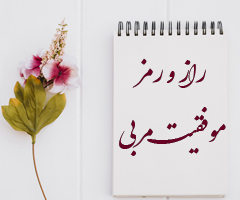 راز و رمز
موفقیت مربی